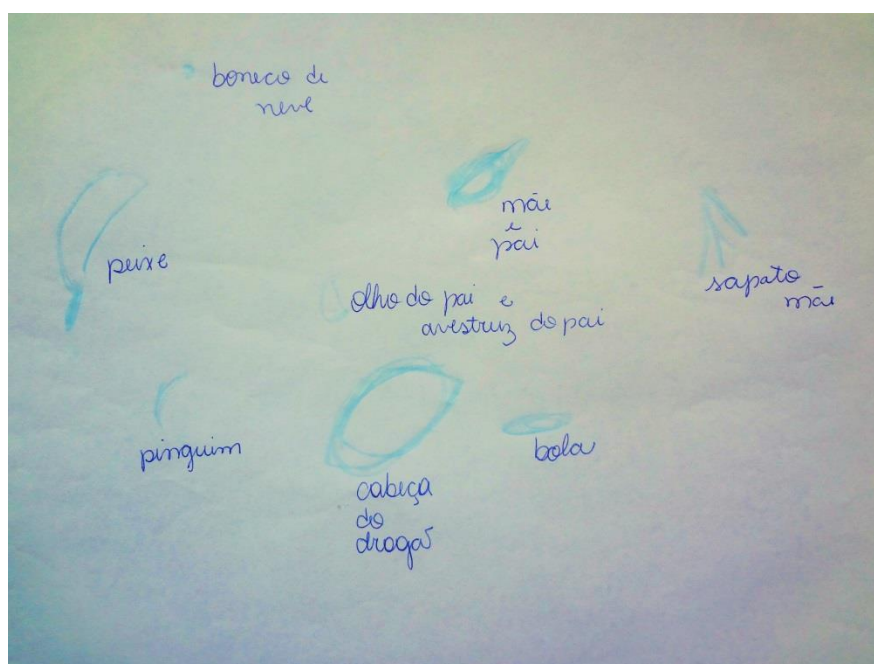 boneco de
neve
mãe
e
pai
peixe
sapato
mãe
olho do pai e
avestruz do pai
pinguim
bola
cabeça
do
dragão